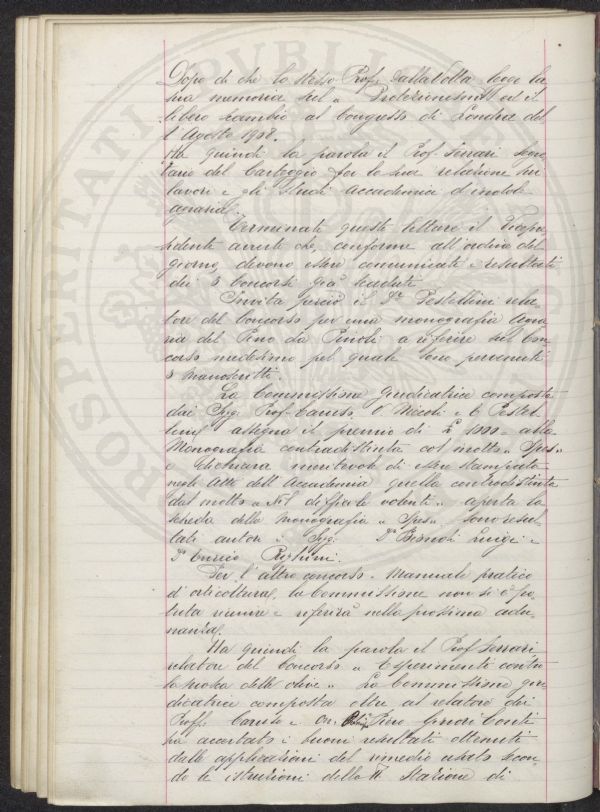 Dopo di che lo stesso Prof. Dalla Volta legge la
sua memoria sul „ Protezionismo ed il
libero scambio al Congresso di Londra del
1 Agosto 1908.
Ha quindi la parola il Prof. Ferrari segre-
tario del Carteggio per la sua relazione sui
lavori e gli studi accademici d'indole
agraria.
Terminate queste letture il Presi-
dente avverte che, conforme all'ordine del
giorno, devono esser comunicati i resultati
dei 3 Concorsi già scaduti.
Invita perciò il Dr. Pestellini rela-
tore del Concorso per una monografia agra-
ria del Pino da Pinoli a riferire sul Con-
corso medesimo pel quale sono pervenuti
3 manoscritti.
La Commissione giudicatrice composta
dai Sigg. Prof. Caruso, V. Niccoli e C. Pestel-
lini assegna il premio di L. 1000 alla
Monografia contradistinta col motto „ Spes „
e dichiara meritevole di esser stampata
negli Atti dell'Accademia quella contradistinta
dal motto „ Nil difficile volenti „ aperta la
scheda della Monografia „ Spes „ sono resul-
tati autori i Sigg. Dr. Luigi e
Dr. Enrico
Per l'altro concorso „ Manuale pratico
d'orticoltura, la Commissione non si è po-
tuta riunire e riferirà nella prossima adu-
nanza.
Ha quindi la parola il Prof. Ferrari,
relatore del Concorso „ Esperimenti contro
la mosca delle olive „ La Commissione giu-
dicatrice composta oltre al relatore dei
Proff. Caruso e On. Piero Ginori Conti
ha accertato i buoni resultati ottenuti
dalle applicazioni del rimedio usato secon-
do le istruzioni della R. Stazione di